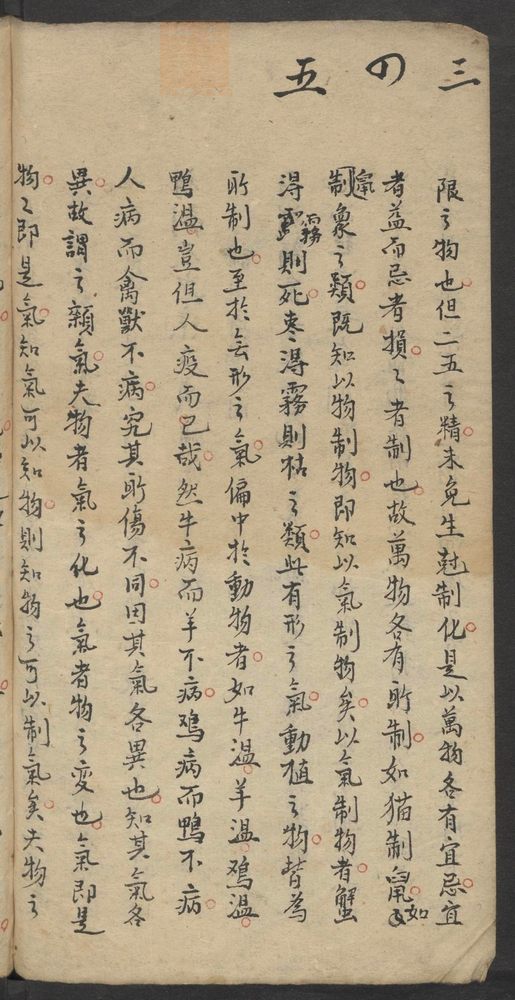 三の五
限之物也但二五之精未免生尅制化是以萬物各有宜忌宜
者益而忌者損〻者制也故萬物各有所制如猫制鼠如
鼠制象之類既知以物制物即知以氣制物矣以氣制物者蟹
得霧則死枣得霧則枯之類此有形之氣動植之物皆為
所制也至於無形之氣偏中於動物者如牛溫羊溫鳮溫
鴨溫豈但人疫而已哉然牛病而羊不病鳮病而鴨不病
人病而禽獸不病究其所傷不同因其氣各異也知其氣各
異故謂之纇氣夫物者氣之化也氣者物之变也氣即是
物〻即是氣知氣可以知物則知物之可以制氣矣夫物之